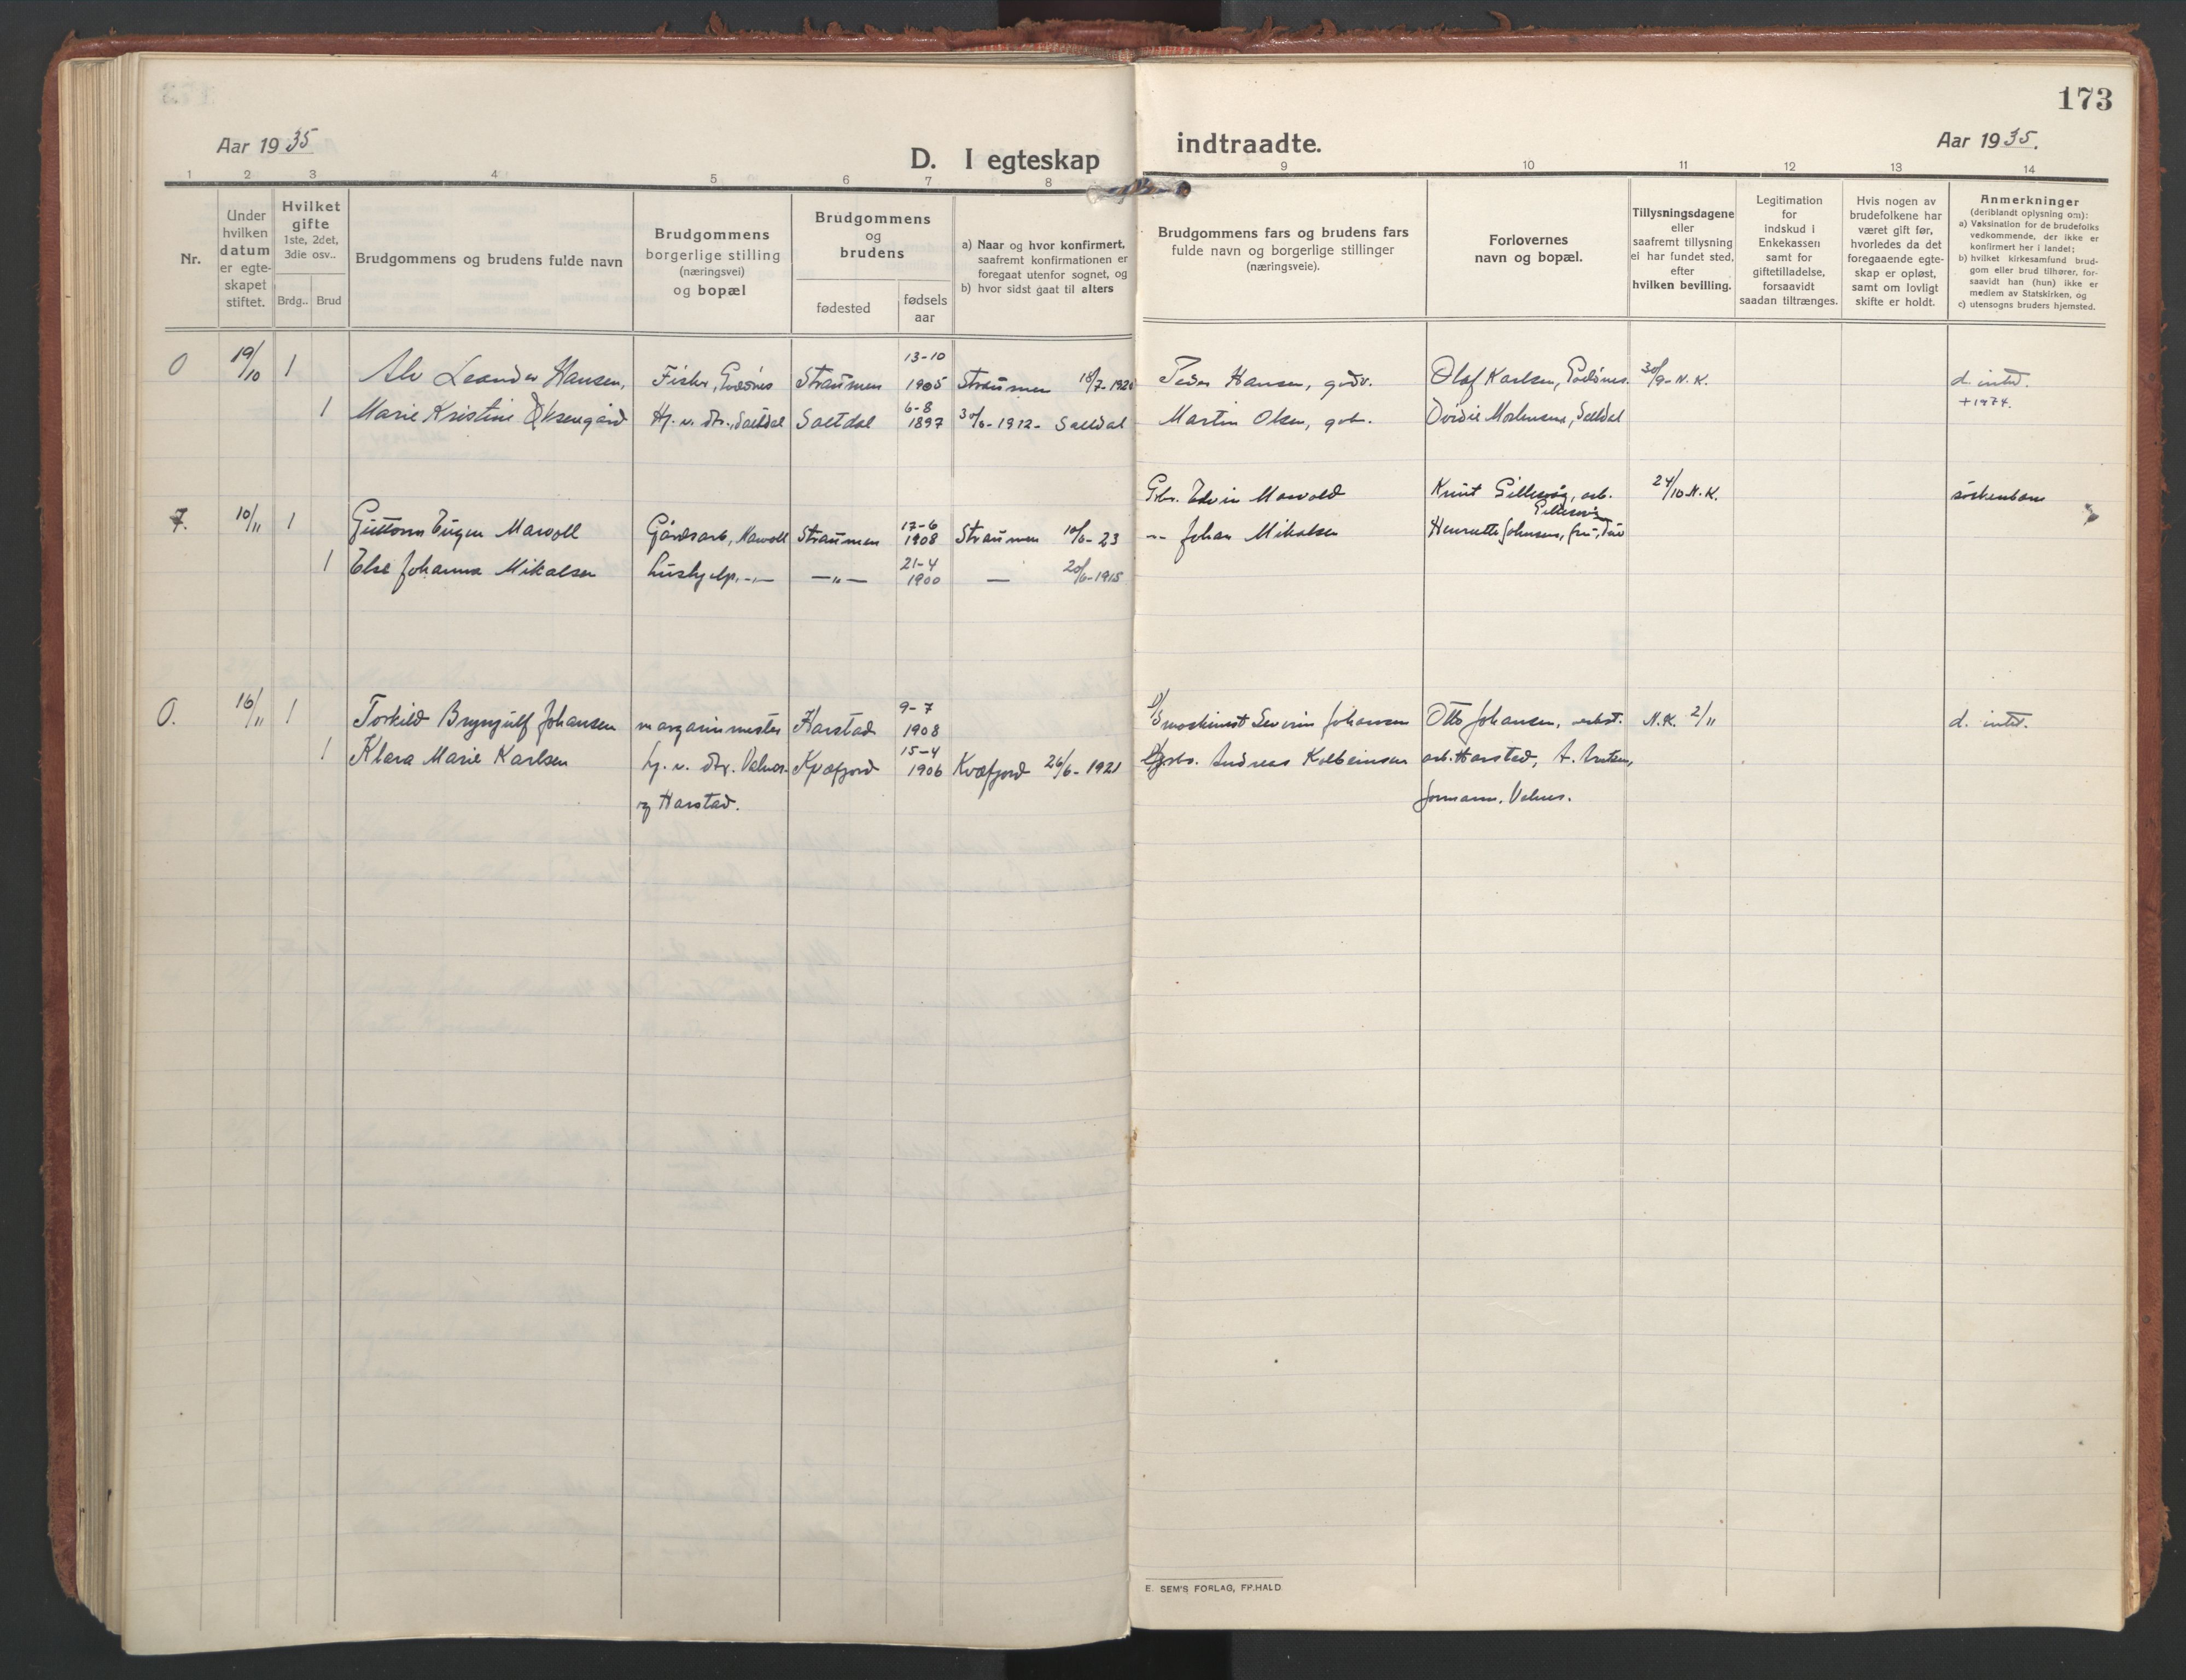 173
Aar 1935
D. I egteskap
indtraadte.
Aar 1935.
1 2 3 4 5 6 7 8 9 10 11 12 13 14
Nr.
Under
hvilken
datum
er egte-
skapet
stiftet.
Hvilket
gifte
1ste, 2det,
3die osv..
Brdg.. Brud
Brudgommens og brudens fulde navn
Brudgommens
borgerlige stilling
(næringsvei)
og bopæl
Brudgommens
og
brudens
fødested
fødsels
aar
a) Naar og hvor konfirmert,
saafremt konfirmationen er
foregaat utenfor sognet, og
b) hvor sidst gaat til alters
Brudgommens fars og brudens fars
fulde navn og borgerlige stillinger
(næringsveie).
Forlovernes
navn og bopæl.
Tillysningsdagene
eller
saafremt tillysning
ei har fundet sted,
efter
hvilken bevilling.
Legitimation
for
indskud i
Enkekassen
samt for
giftetilladelse,
forsaavidt
saadan tiltrænges.
Hvis nogen av
brudefolkene har
været gift før,
hvorledes da det
foregaaende egte-
skap er opløst,
samt om lovligt
skifte er holdt.
Anmerkninger
(deriblandt oplysning om):
a) Vaksination for de brudefolks
vedkommende, der ikke er
konfirmert her i landet;
b) hvilket kirkesamfund brud-
gom eller brud tilhører, for-
saavidt han (hun) ikke er
medlem av Statskirken, og
c) utensogns bruders hjemsted.
0 19/10 1 Alv Leander Hansen, Fisker, Godønes Straumen 13-10 1905 Straumen 18/7-1920 Peder Hansen, Olaf Karlsen, Godønes. 30/9-N.K. d. intet.
+1974.
1 Marie Kristine Øksengård Hj. v. dtr., Saltdal Saltdal 6-8 1897 30/6-1912- Saltdal Martin Olsen, gbr. Ovidie Mortensen, Saltdal
7. 10/11 1 Guttorm Eugen Marvoll Gårdsarb, Marvoll Straumen 17-6 1908 Straumen 10/6-23 Gbr. Edvin Marvold Knut Gillesvåg, arb. Gillesvåg 24/10 N.K. søskenbarn
1 Else Johanna Mikalsen hushjelp, -„- -„- 21-4 1900 — 20/6-1915 -„- Johan Mikalsen Henriette Johnsen, fru,
0. 16/11 1 Torkild Brynjulf Johansen margarinmester Harstad 9-7 1908 maskinist Severin Johansen Otto Johansen, N.K. 2/11 d. intet.
1 Klara Marie Karlsen hj. v. dtr. Valnes. Kvæfjord 15-4 1906 Kvæfjord 26/6-1921 gbr. Andreas Kolbeinsen arb. Harstad, A. Arntsen,
og Harstad. formann. Valnes.
E. SEM'S FORLAG, FR.HALD.